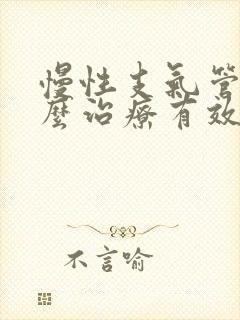 慢性支氣管
麼治療有效
不言喻